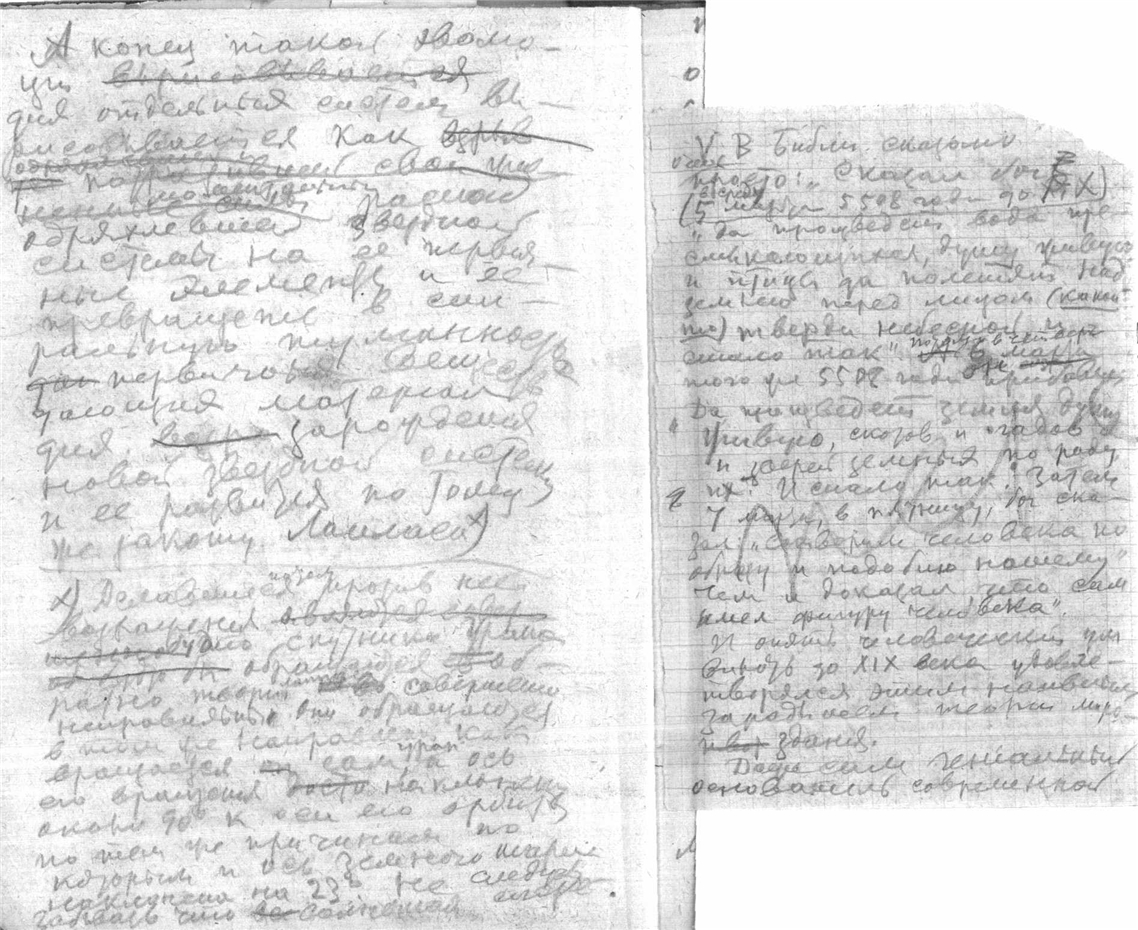 А конец такой эволю-
ции вырисовывается
для отдельных систем вы-
рисовывается как взрыв
потерявшей свой
обряхлевшей звездной
системы на ее первич-
ные элементы и ее
превращение в спи-
ральную туманность
первичного вещества
дающая материал
для зарождения
новой звездной системы
и ее развития по тому
же закону Лапласа х)
х) Делавшееся потом против нее
возражения является совер-
что спутники Урана
обращаются об-
ратно теории совершенно
неправильны: они обращаются
в том же направлении как
вращается сам Уран а ось
его вращения наклонена
около 90° к оси его орбиты
по тем же причинам по
которым и ось Земного шара
наклонена на 23° Не следует
забывать что солнечная
V В Библии сказано
просто: „Сказал бог
(5 марта 5508 года до Р. X)
„да произведет вода пре-
смыкающихся, душу живую
и птицы да полетят над
землею перед лицом (каким
то) тверди небесной и
стало так"
того же 5508 года прибавил
„Да произведет земля душу
живую, скотов и гадов
и зверей земных по роду
их". И стало так. Затем
7 марта, в пятницу, бог ска-
зал „сотворим человека по
образу и подобию нашему"
чем и доказал, что сам
имел фигуру человека".
И опять человеческий ум
вплоть до XIX века удовле-
творялся этим наивным
зародышем теории миро-
здания.
Даже сам гениальный
основатель современной